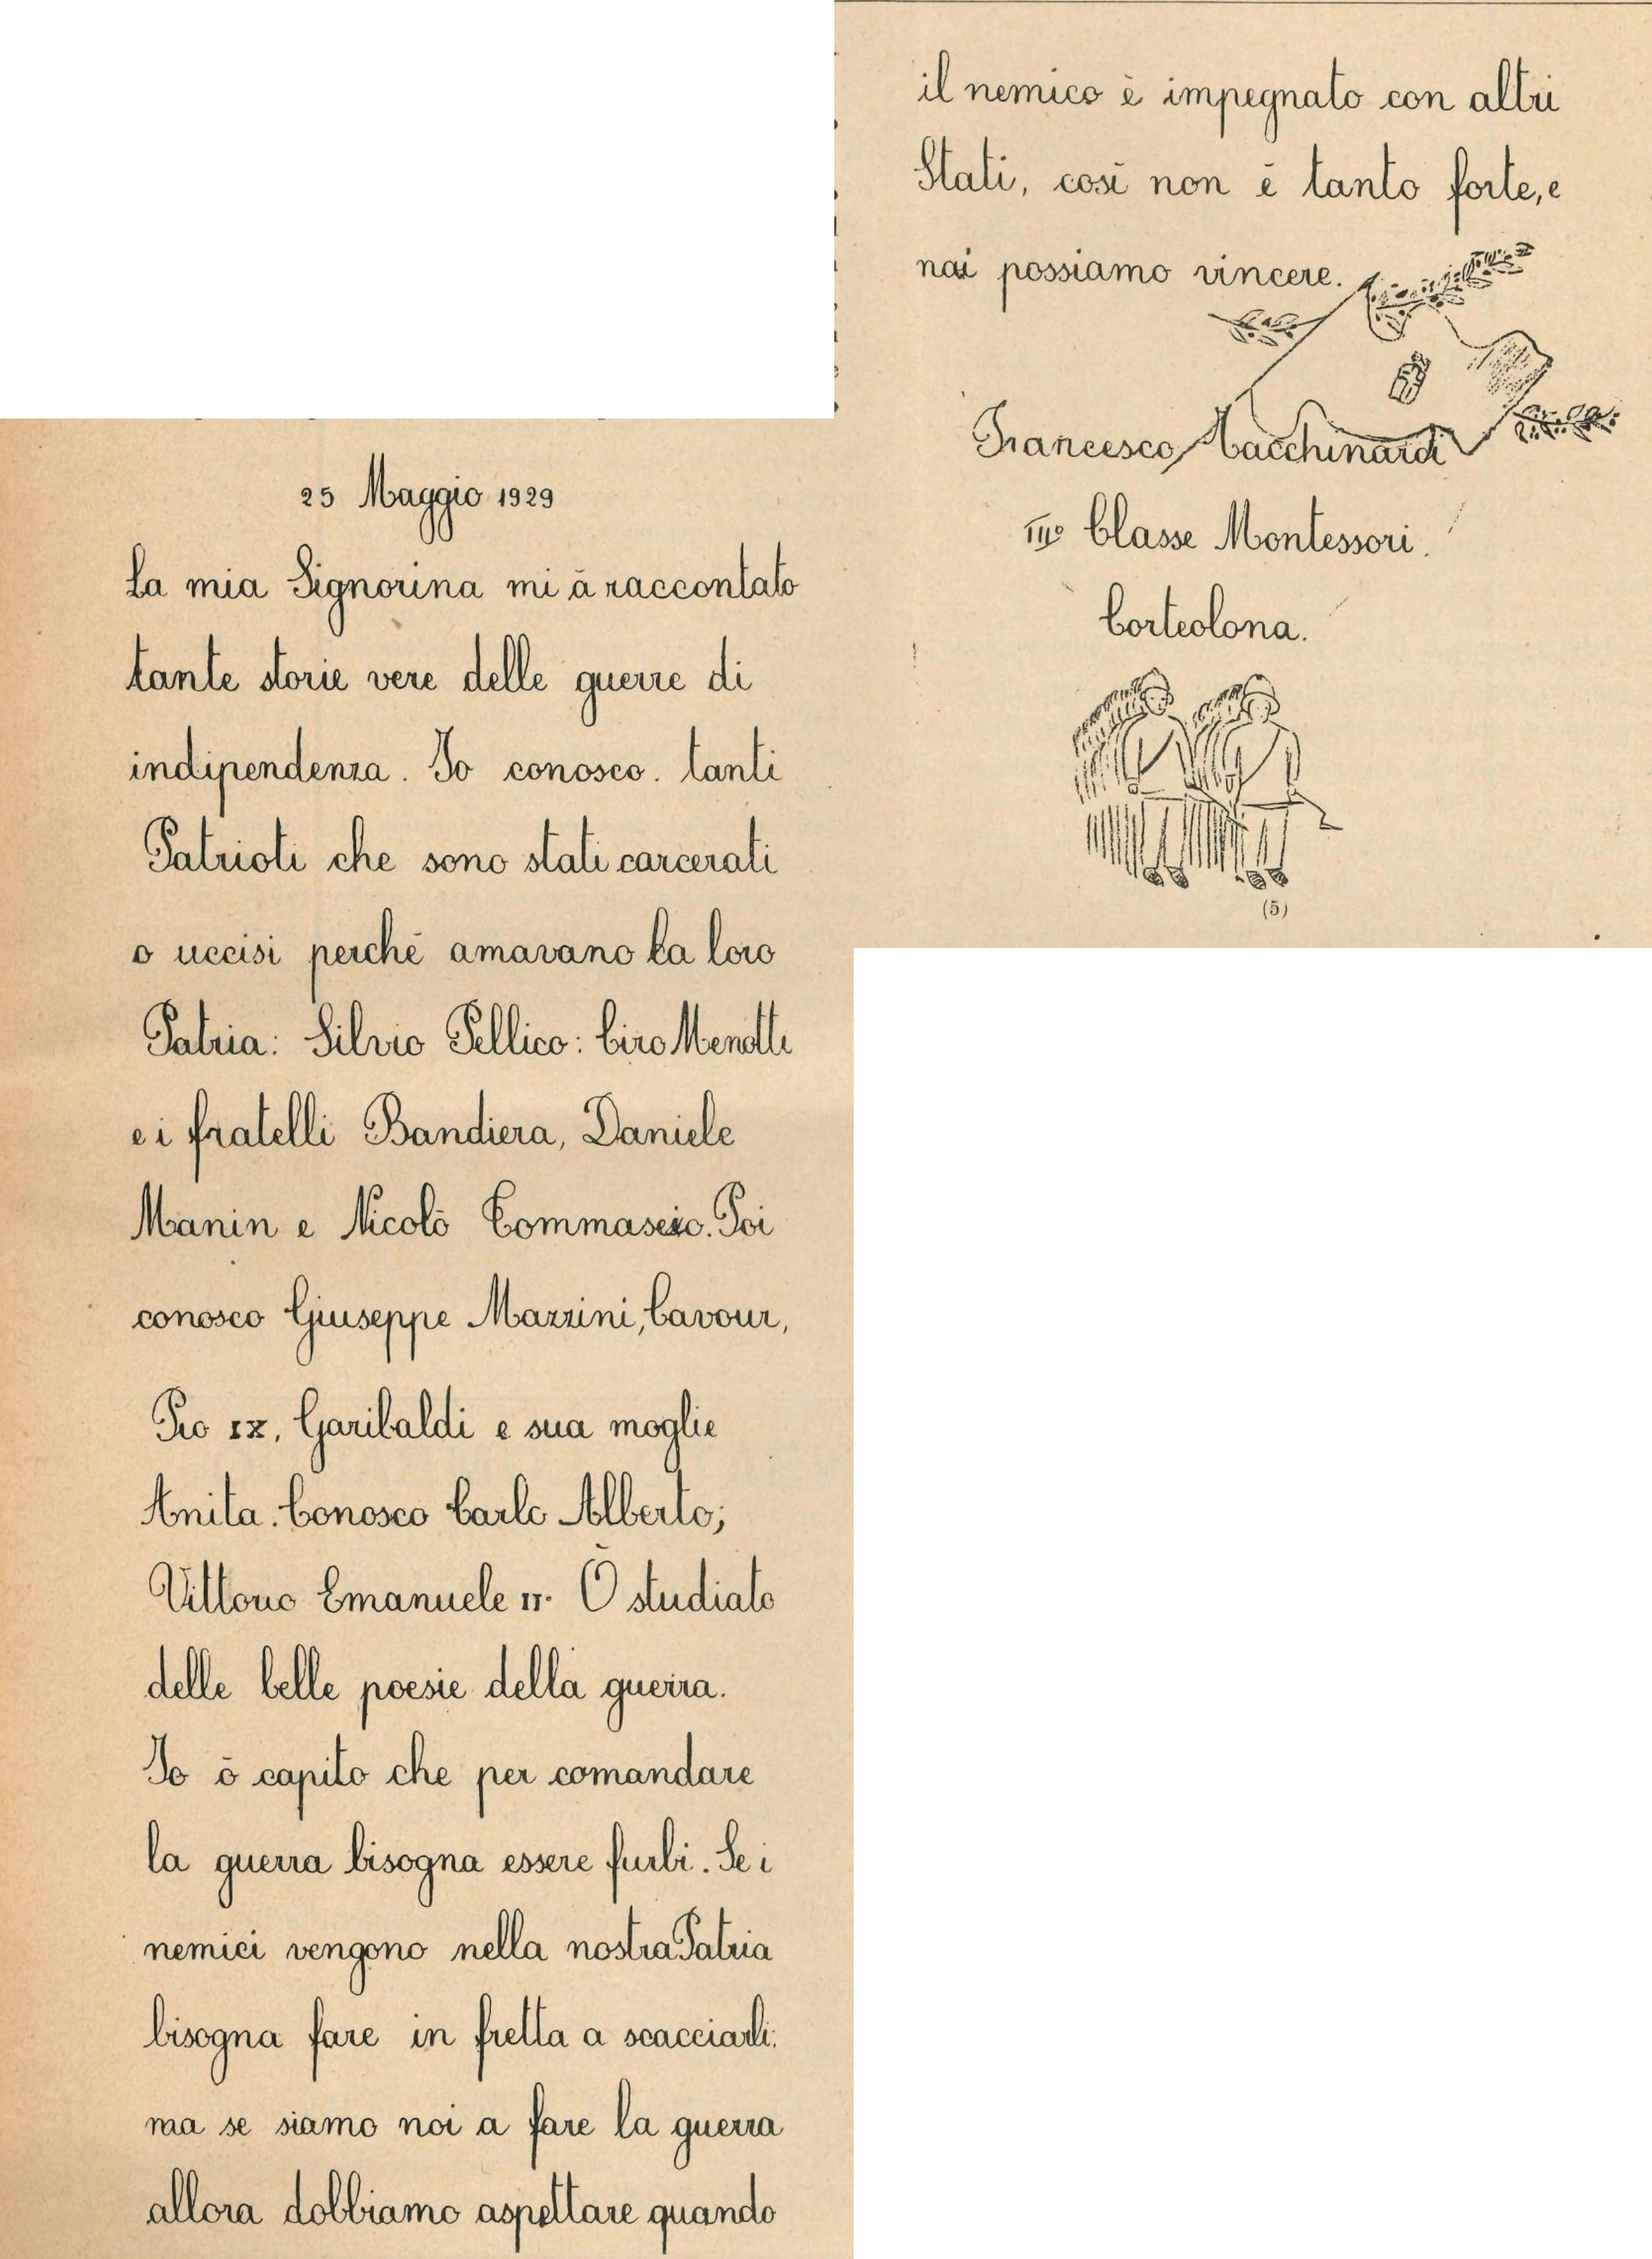 25 Maggio 1929
La mia Signorina mi à raccontato
tante storie vere delle guerre di
indipendenza. Io conosco. tanti
Patrioti che sono stati carcerati
o uccisi perchè amavano la loro
Patria: Silvio Pellico: Ciro Menotti
e i fratelli Bandiera, Daniele
Manin e Nicolò Tommaseio. Poi
conosco Giuseppe Mazzini, Cavour,
Pio IX, Garibaldi e sua moglie
Anita. Conosco Carlo Alberto;
Vittorio Emanuele II. Ò studiato
delle belle poesie della guerra.
Io ò capito che per comandare
la guerra bisogna essere furbi. Se i
nemici vengono nella nostra Patria
bisogna fare in fretta a scacciarli:
ma se siamo noi a fare la guerra
allora dobbiamo aspettare quando
il nemico è impegnato con altri
Stati, così non è tanto forte, e
noi possiamo vincere.
Francesco Macchinardi
III° Classe Montessori.
Corteolona.
(5)